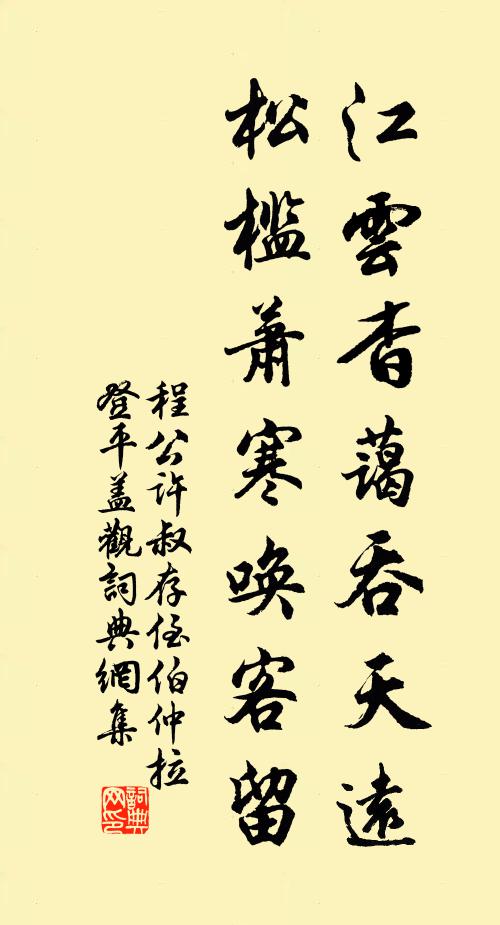 江雲杳藹吞天遠
松檻蕭寒喚客留
程公許叔存侄伯仲拉
登平盖觀詞典網集
詞典
网印